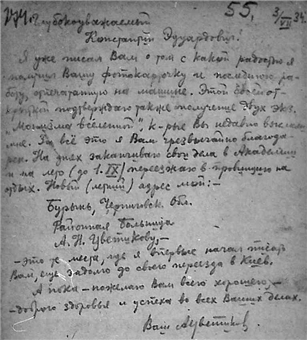 55.
3/VI 34
Глубокоуважаемый
Константин Эдуардович!
Я уже писал Вам о том с какой радостью я
получил Вашу фотокарточку и последнюю ра-
боту, отпечатанную на машине. Этой
открыткой подтверждаю также получение двух экз.
„ Вселенной", к-рые Вы недавно выслали
мне. За всё это я Вам чрезвычайно благода-
рен. На днях заканчиваю свои дела в Академии
и на лето (до 1.IX) переезжаю в провинцию на
отдых. Новый (летний) адрес мой:-
Бурынь, Черниговск. обл.
Районная больница
А. П. Цветкову,-
-это те места, где я впервые начал писать
Вам, еще задолго до своего переезда в Киев.
А пока - пожелаю Вам всего хорошего,-
-доброго здоровья и успеха во всех Ваших делах.
Ваш А Цветиков